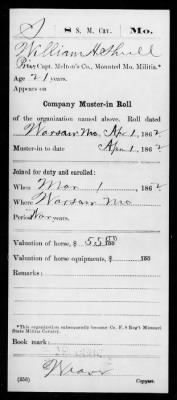 S 8 S. M. Cav. Mo.
William H. Shull
Priv, Capt. Melton's Co., Mounted Mo. Militia.*
Age 21 years.
Appears on
Company Muster-in Roll
of the organization named above. Roll dated
Warsaw Mo, Apr 1, 1862
Muster-in to date Apr 1, 1862
Joined for duty and enrolled:
When Mar 1, 1862
Where Warsaw Mo
Period War years.
Valuation of horse, $ 55 00/100
Valuation of horse equipments, $ /100
Remarks:
*This organization subsequently became Co. F, 8 Reg't Missouri
State Militia Cavalry.
Book mark:
(356) Copyist.